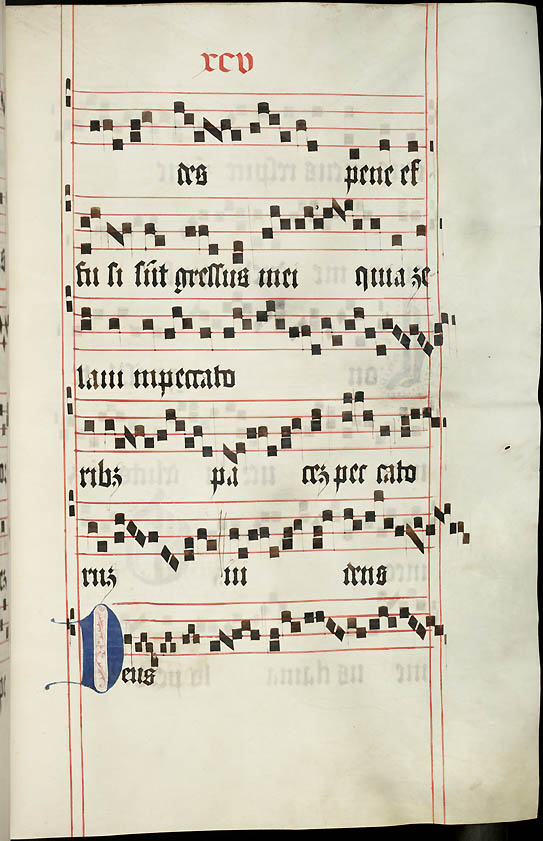 xcv
des pene ef
fu si sūt gressus mei quia ze
laui inpeccato
ribꝫ pa cēꝫ pec cato
ruꝫ ui dens
Deus